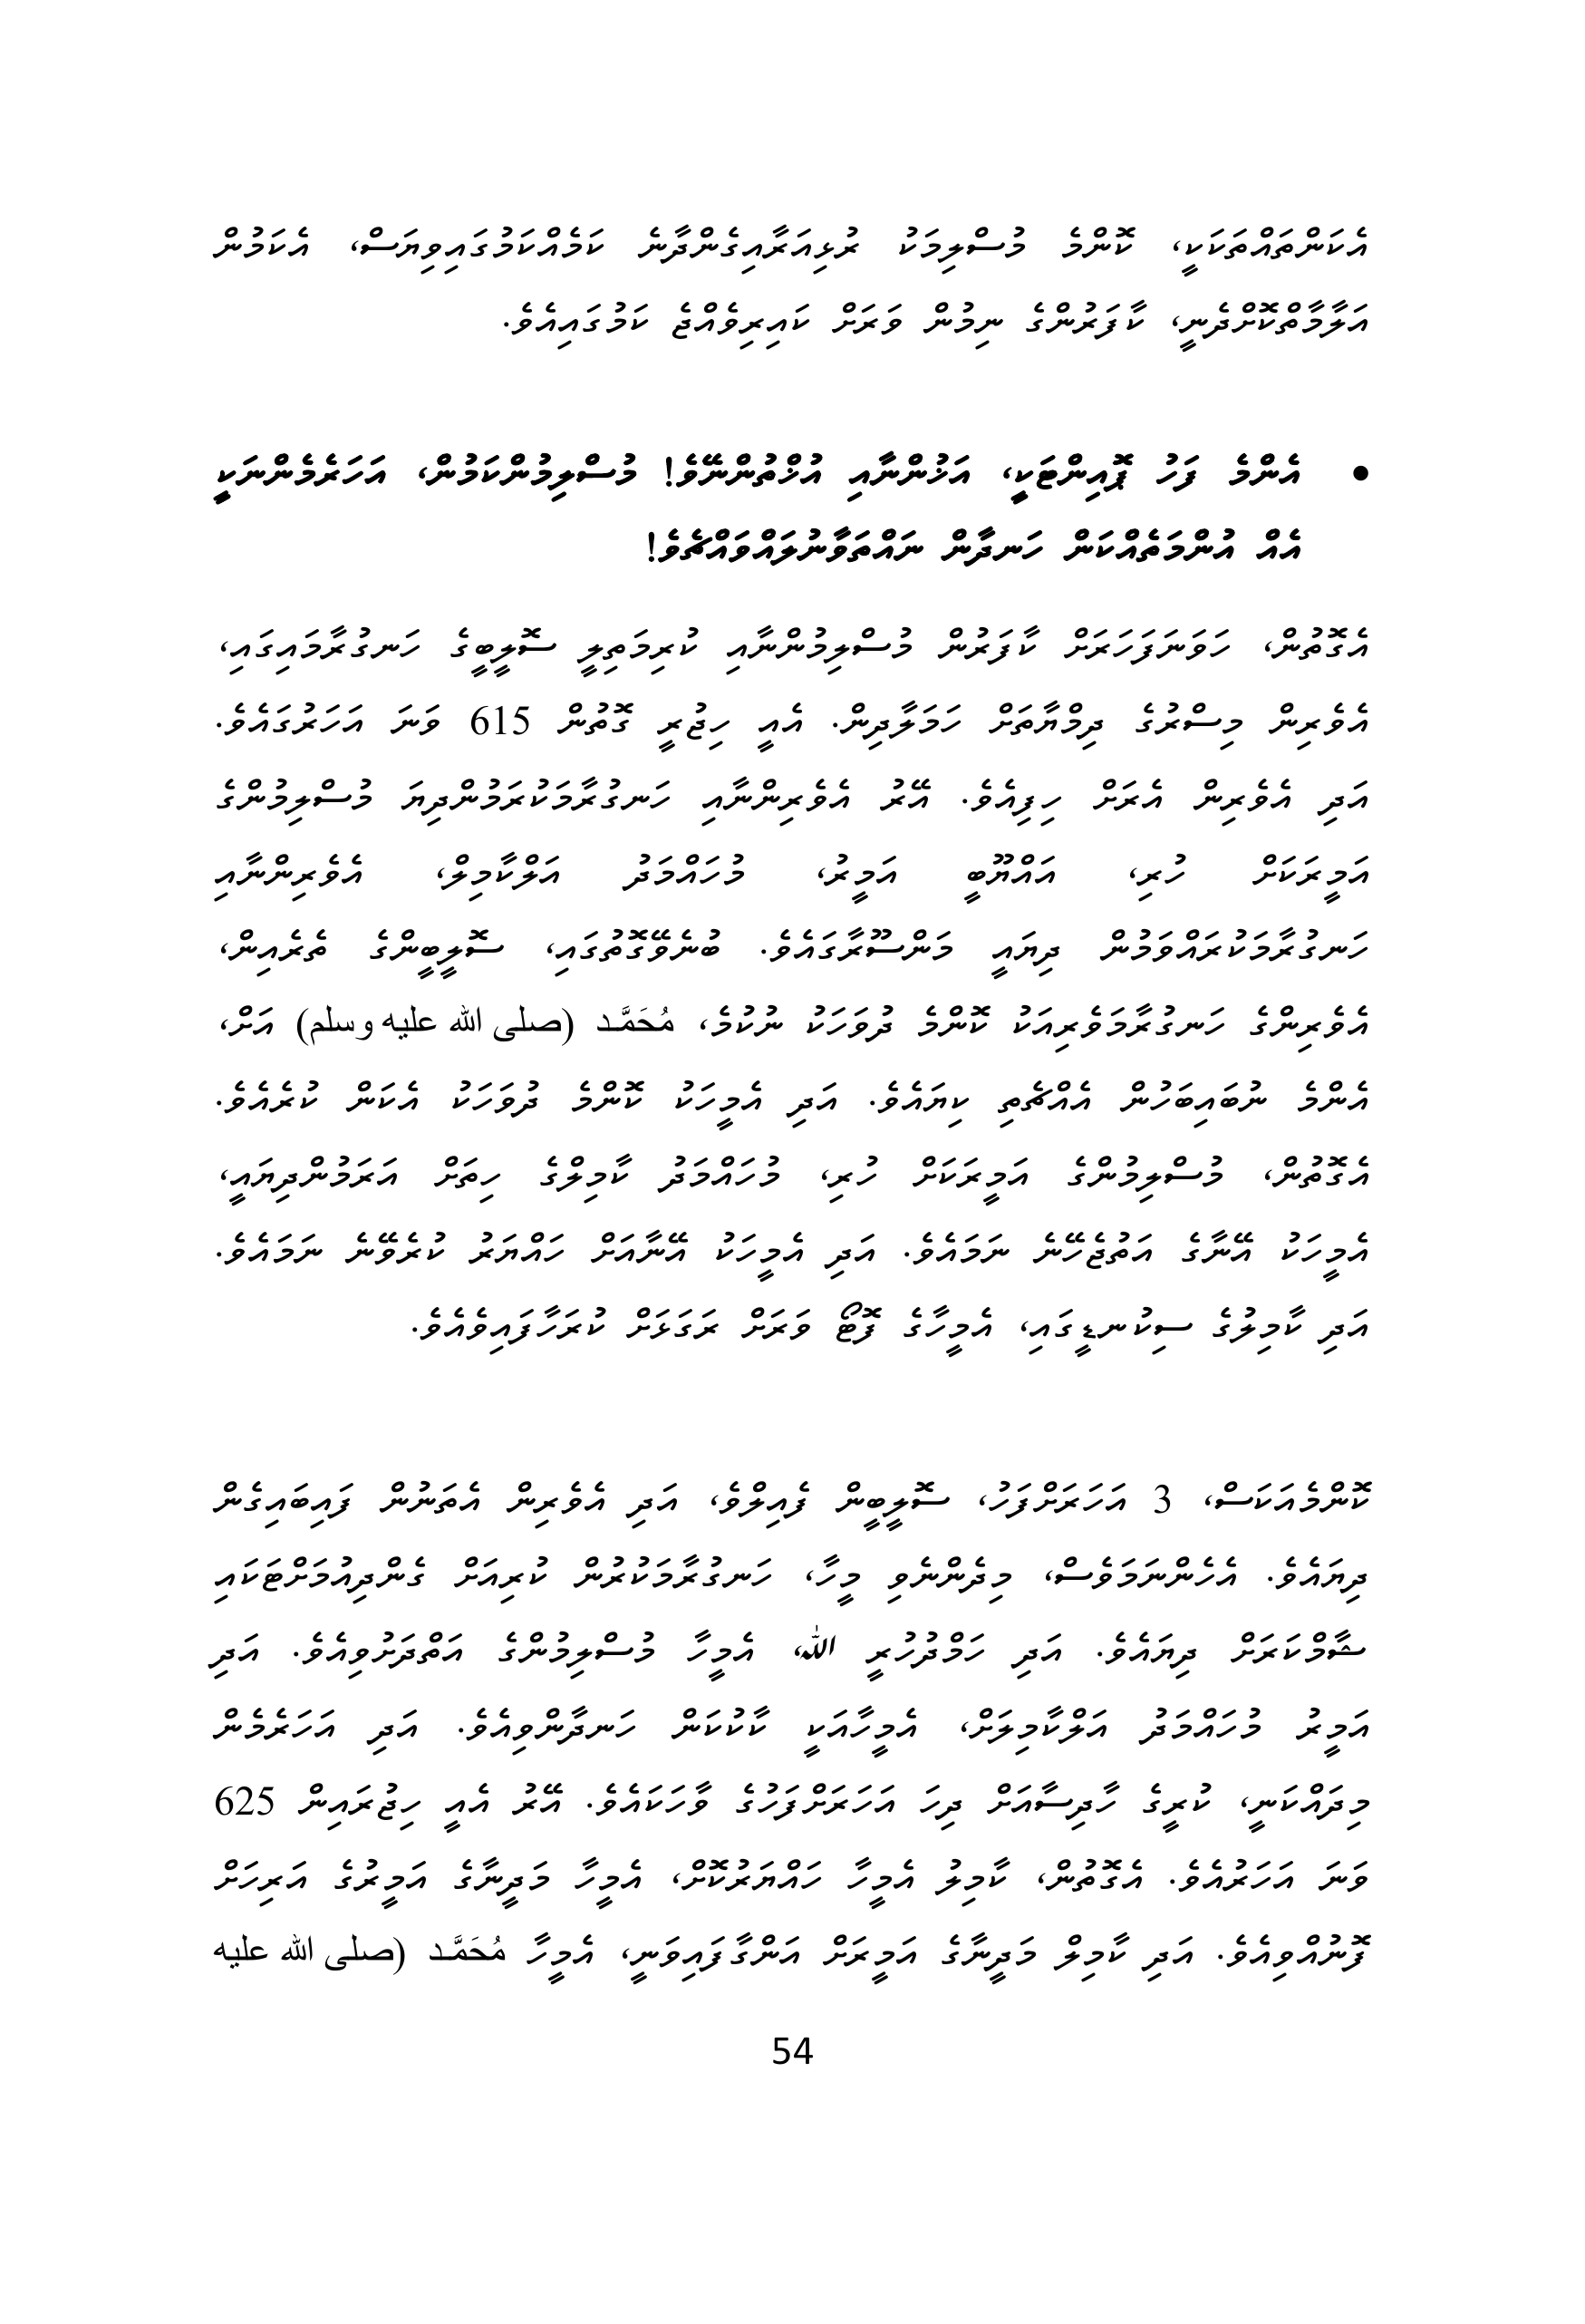 އެކަންތައްތަކަކީ، ކޮންމެ މުސްލިމަކު ރުޅިއަރާއިގެންދާނެ ކަމެއްކަމުގައިވިޔަސް، އެކަމުން
އަލާމާތްކޮށްދެނީ، ކާފަރުންގެ ނިމުން ވަރަށް ކައިރިވެއްޖެ ކަމުގައިއެވެ.
• އެންމެ ފަހު ޕޮއިންޓަކީ، އަޚުންނާއި އުޚްތުންނޭވެ! މުސްލިމުންކަމުން، އަހަރެމެންނަކީ
އެއް އުންމަތެއްކަން ހަނދާން ނައްތަވާނުލައްވައްޗެވެ!
އެގޮތުން، ހަވަނަފަހަރަށް ކާފަރުން މުސްލިމުންނާއި ކުރިމަތިލީ ސޮލީބީގެ ހަނގުރާމައިގައި،
އެވެރިން މިސްރުގެ ދިމްޔާތަށް ހަމަލާދިން. އެއީ ހިޖުރީ ގޮތުން 615 ވަނަ އަހަރުގައެވެ.
އަދި އެވެރިން އެރަށް ހިފިއެވެ. އޭރު އެވެރިންނާއި ހަނގުރާމަކުރަމުންދިޔަ މުސްލިމުންގެ
އަމީރަކަށް ހުރި، އައްޔޫބީ އަމީރު، މުހައްމަދު އަލްކާމިލް، އެވެރިންނާއި
ހަނގުރާމަކުރައްވަމުން ދިޔައީ މަންސޫރާގައެވެ. ބުނެވޭގޮތުގައި، ސޮލީބީންގެ ތެރެއިން،
އެވެރިންގެ ހަނގުރާމަވެރިއަކު ކޮންމެ ދުވަހަކު ނުކުމެ، مُحَمَّد (صلى الله عليه وسلم) އަށް،
އެންމެ ނުބައިބަހުން އެއްޗެތި ކިޔައެވެ. އަދި އެމީހަކު ކޮންމެ ދުވަހަކު އެކަން ކުރެއެވެ.
އެގޮތުން، މުސްލިމުންގެ އަމީރަކަށް ހުރި، މުހައްމަދު ކާމިލްގެ ހިތަށް އަރަމުންދިޔައީ،
އެމީހަކު އޭނާގެ އަތުޖެހޭނެ ނަމައެވެ. އަދި އެމީހަކު އޭނާއަށް ހައްޔަރު ކުރެވޭނެ ނަމައެވެ.
އަދި ކާމިލުގެ ސިކުނޑީގައި، އެމީހާގެ ފޮޓޯ ވަރަށް ރަގަޅަށް ކުރަހާފައިވެއެވެ.
ކޮންމެއަކަސް، 3 އަހަރަށްފަހު، ސޮލީބީން ފެއިލްވެ، އަދި އެވެރިން އެތަނުން ފައިބައިގެން
ދިޔައެވެ. އެހެންނަމަވެސް، މިދެންނެވި މީހާ، ހަނގުރާމަކުރުން ކުރިއަށް ގެންދިއުމަށްޓަކައި
ޝާމްކަރަށް ދިޔައެވެ. އަދި ހަމްދުހުރީ الله، އެމީހާ މުސްލިމުންގެ އަތްދަށުވިއެވެ. އަދި
އަމީރު މުހައްމަދު އަލްކާމިލަށް، އެމީހާއަކީ ކާކުކަން ހަނދާންވިއެވެ. އަދި އަހަރެމެން
މިދައްކަނީ، ކުރީގެ ހާދިސާއަށް ދިހަ އަހަރަށްފަހުގެ ވާހަކައެވެ. އޭރު އެއީ ހިޖުރައިން 625
ވަނަ އަހަރުއެވެ. އެގޮތުން، ކާމިލު އެމީހާ ހައްޔަރުކޮށް، އެމީހާ މަދީނާގެ އަމީރުގެ އަރިހަށް
ފޮނުއްވިއެވެ. އަދި ކާމިލް މަދީނާގެ އަމީރަށް އަންގާފައިވަނީ، އެމީހާ مُحَمَّد (صلى الله عليه
54